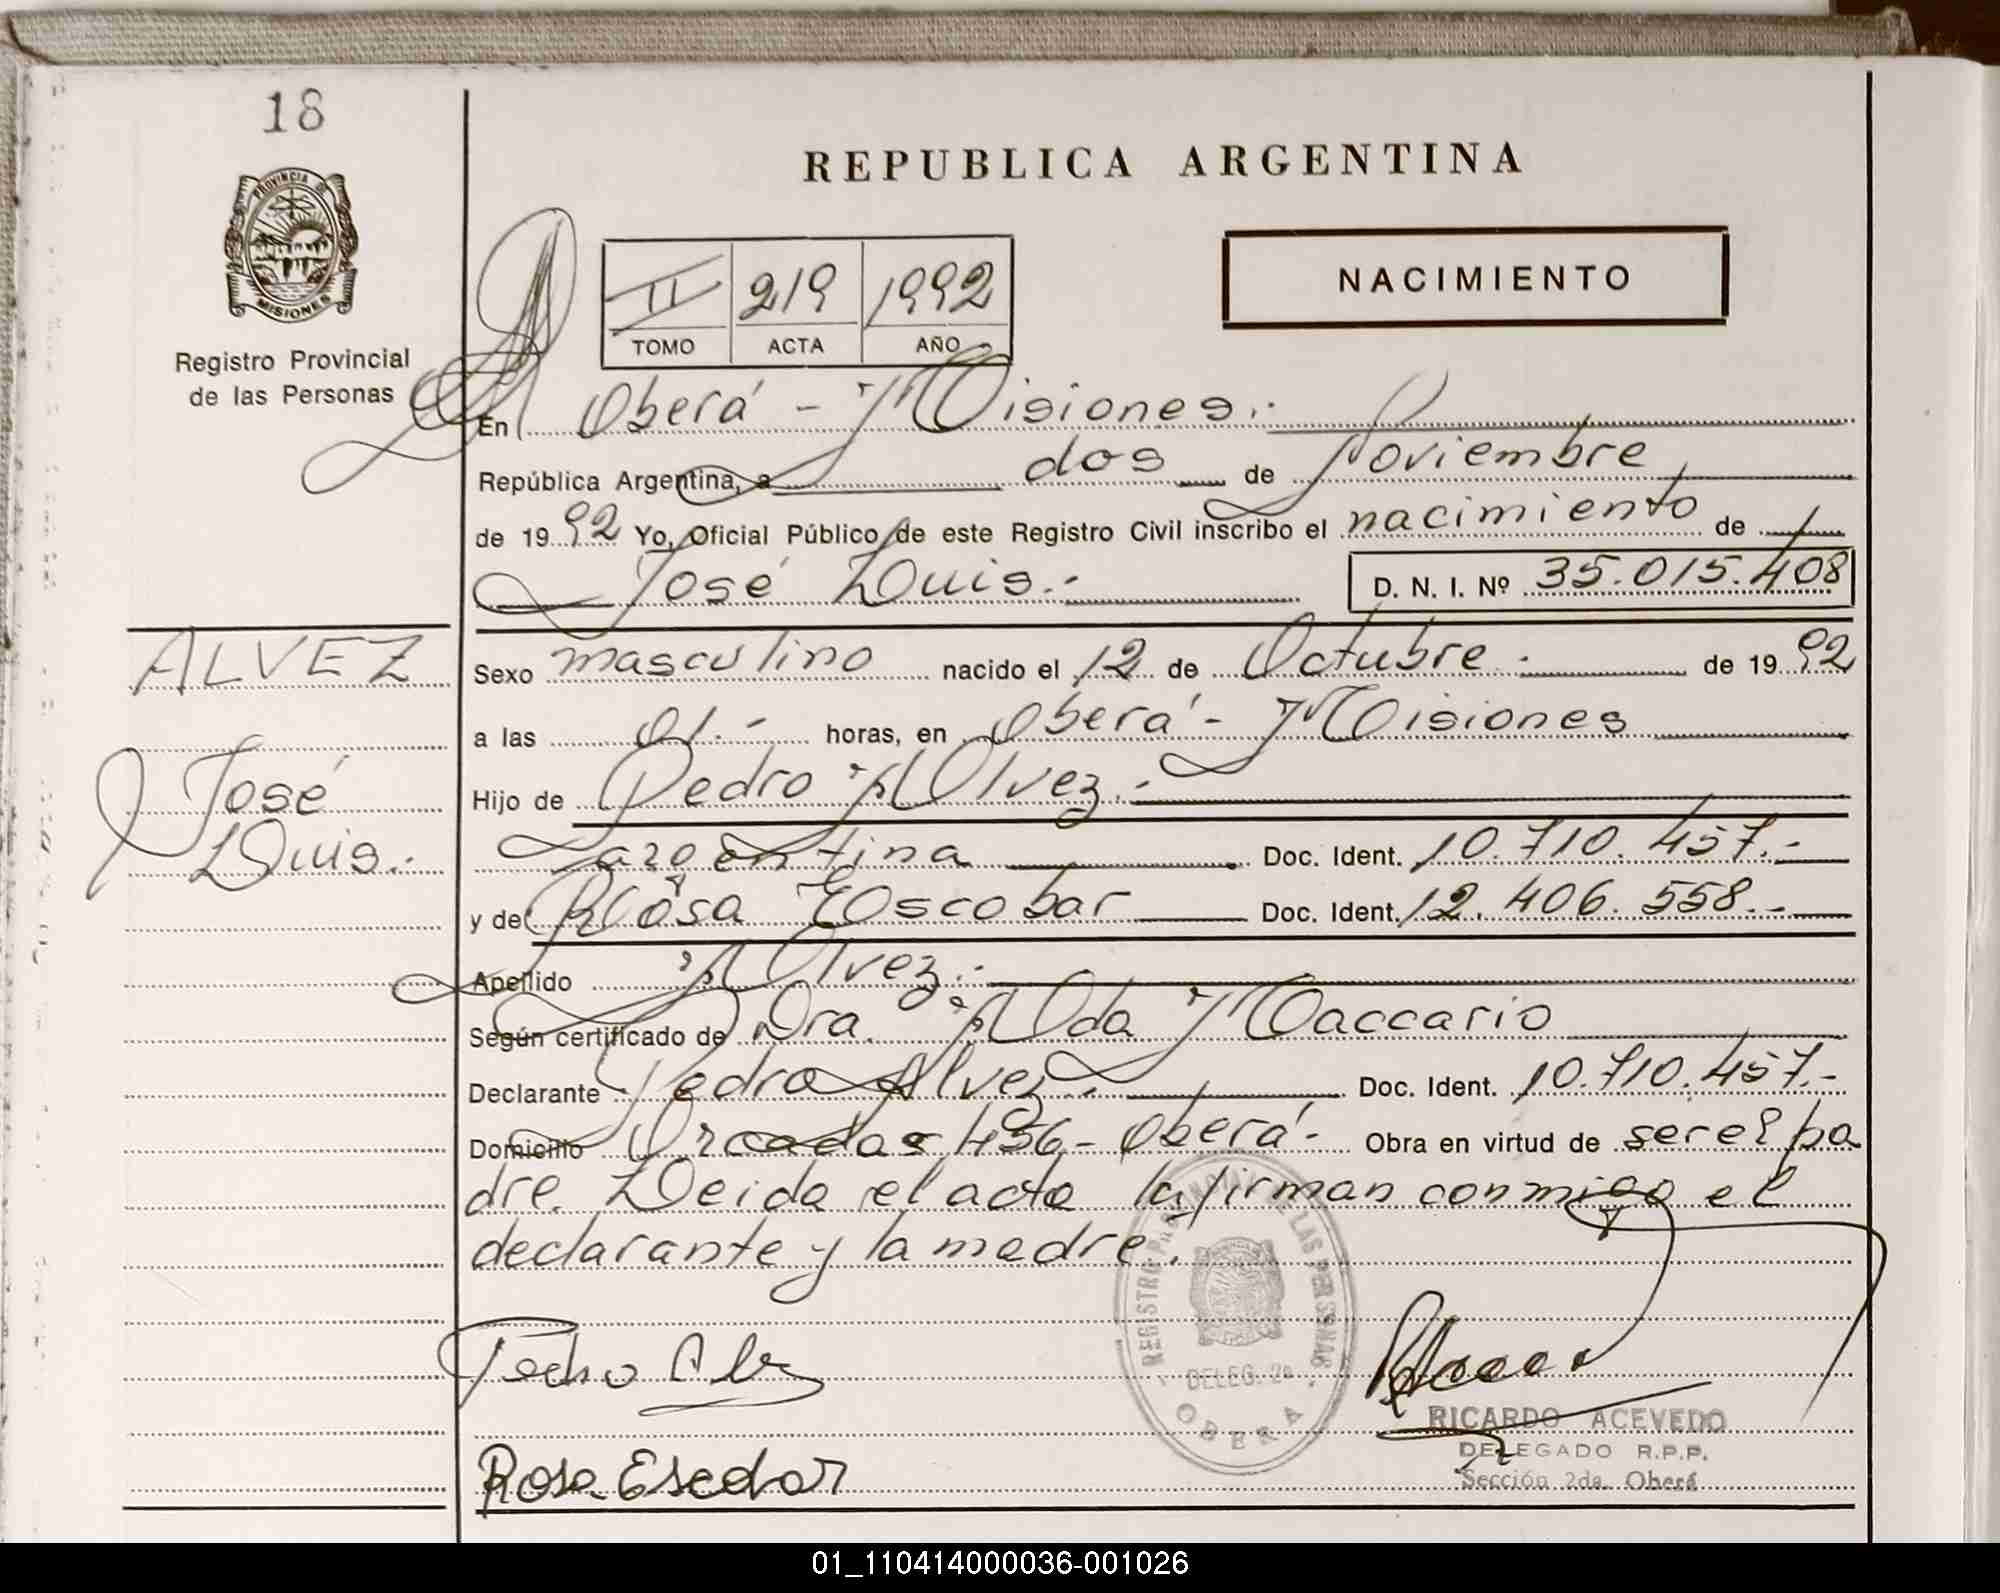 18
PROVINCIA D
MISIONES
Registro Provincial
de las Personas
REPUBLICA ARGENTINA
II 219 1992
TOMO ACTA AÑO
NACIMIENTO
En Oberá - Misiones.-
República Argentina, a dos de Noviembre
de 1992 Yo, Oficial Público de este Registro Civil inscribo el nacimiento de
José Luis.-
D. N. I. Nº 35.015.408
ALVEZ
José
Luis.-
Sexo masculino nacido el 12 de Octubre.- de 1992
a las 01.- horas, en Oberá - Misiones
Hijo de Pedro Alvez.-
argentina Doc. Ident. 10.710.457.-
y de Rosa Escobar Doc. Ident. 12.406.558.-
Apellido Alvez.-
Según certificado de Dra. Ada Maccario
Declarante Pedro Alvez.- Doc. Ident. 10.710.457.-
Domicilio Orcadas 456 - Oberá.- Obra en virtud de ser el pa
dre. Leida el acta la firman conmigo el
declarante y la madre.
REGISTRO PROVINCIAL DE LAS PERSONAS
DELEG. 2a
OBERA
Pedro Alvez
RICARDO ACEVEDO
DELEGADO R.P.P.
Sección 2da. Oberá
Rosa Escobar
01_110414000036-001026